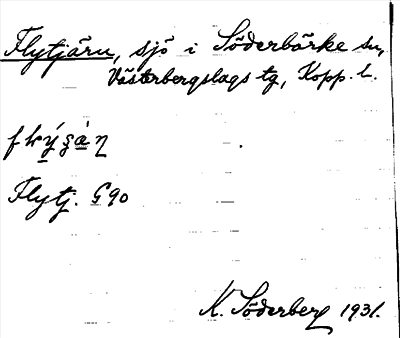 Flytjärn, sjö i Söderbärke sn,
Västerbergslags tg, Kopp. l.
Flytj. G 90
K. Söderberg 1931.